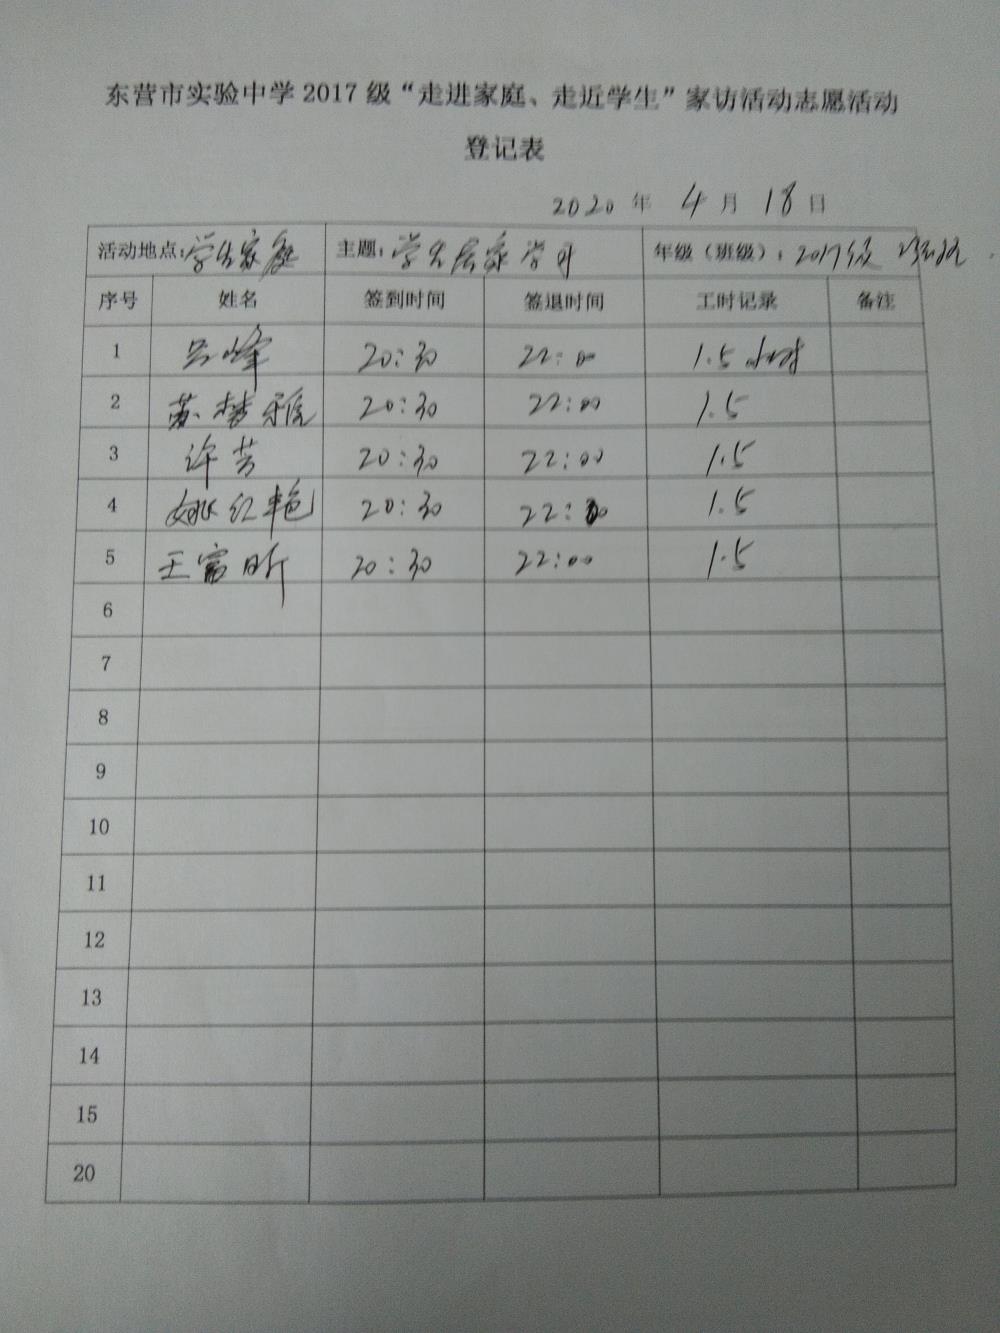 东营市实验中学2017级“走进家庭、走近学生”家访活动志愿活动
登记表
2020 年 4 月 18 日
活动地点:学生家庭 主题:学生居家学习 年级（班级）:2017级
序号 姓名 签到时间 签退时间 工时记录 备注
1 吕峰 20:30 22:00 1.5小时
2 苏梦雅 20:30 22:00 1.5
3 许芳 20:30 22:00 1.5
4 姚红艳 20:30 22:00 1.5
5 王富昕 20:30 22:00 1.5
6
7
8
9
10
11
12
13
14
15
20